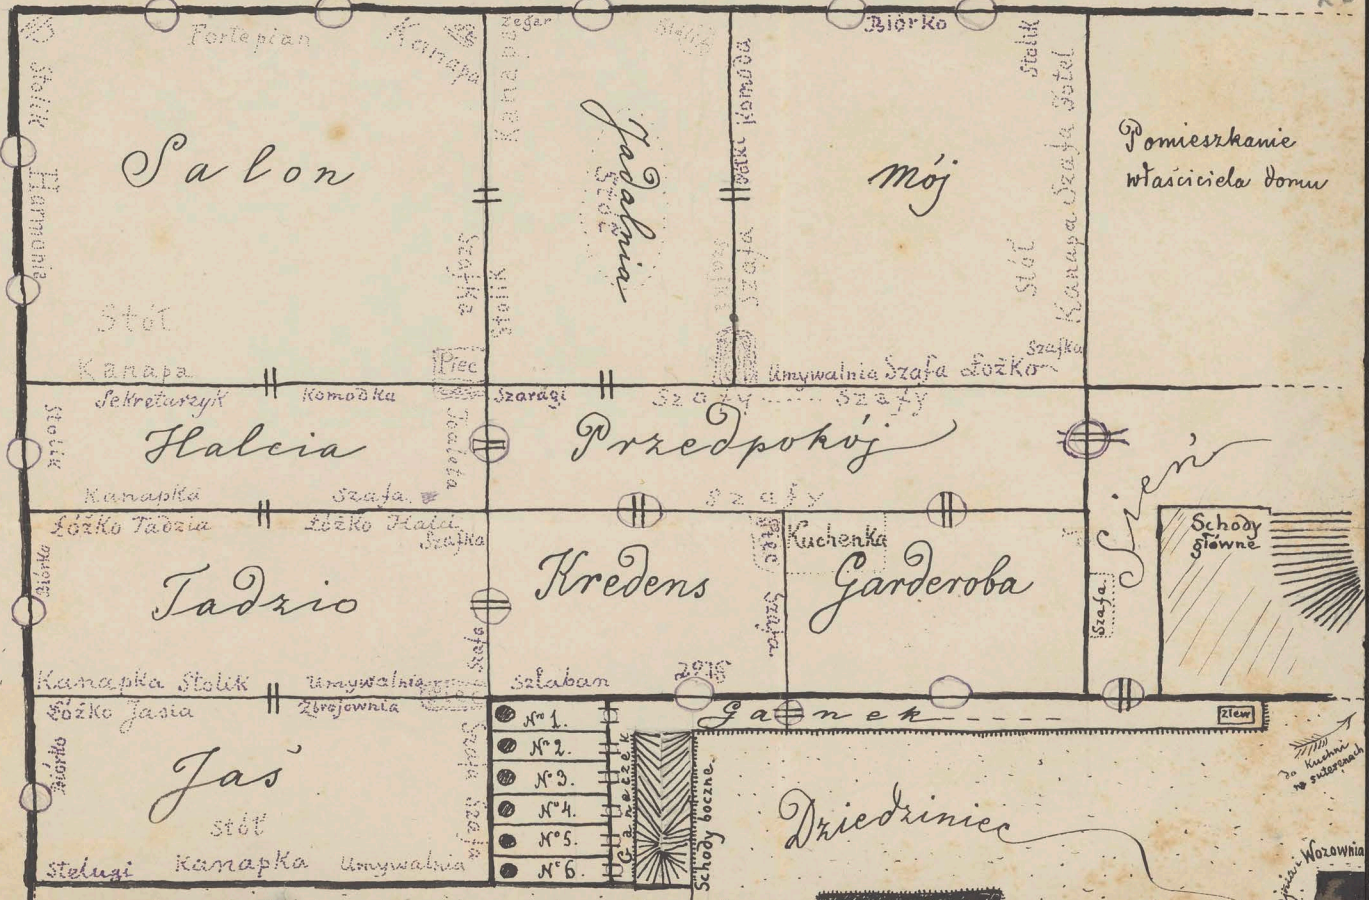 Fortepian
Kanapa
Stolik
Harmonia
Salon
Szafka
Stół
Kanapa
Piec
Zegar
Kanapa
Stolik
Jadalnia
Stół
Stolik
Szafka
Biórko
Stolik
Komoda
Szafa
mój
Kanapa Szafa Fotel
Stół
Szafka
Umywalnia Szafa Łożko
Pomieszkanie
właściciela domu
Sekretarzyk
Komodka
Stolik
Halcia
Toaleta
Kanapka
Szafa
Szaragi
Szafy ...... Szafy
Przedpokój
Szafy
Sień
Schody
główne
Szafa
Łóżko Tadzia
Łóżko Halci
Szafka
Biórko
Tadzio
Szafa
Kanapka Stolik
Umywalnia
Kredens
Piec
Szafa
Szlaban
Kuchenka
Garderoba
Łóżko Jasia
Zbrojownia
Biórko
Jaś
Szafa Szafa
Stół
Stelugi
Kanapka
Umywalnia
Nº 1.
Nº 2.
Nº 3.
Nº 4.
Nº 5.
Nº 6.
Ganeczek
Schody boczne
Ganek
Zlew
Dziedziniec
do Kuchni
w suterenach
Wozownia